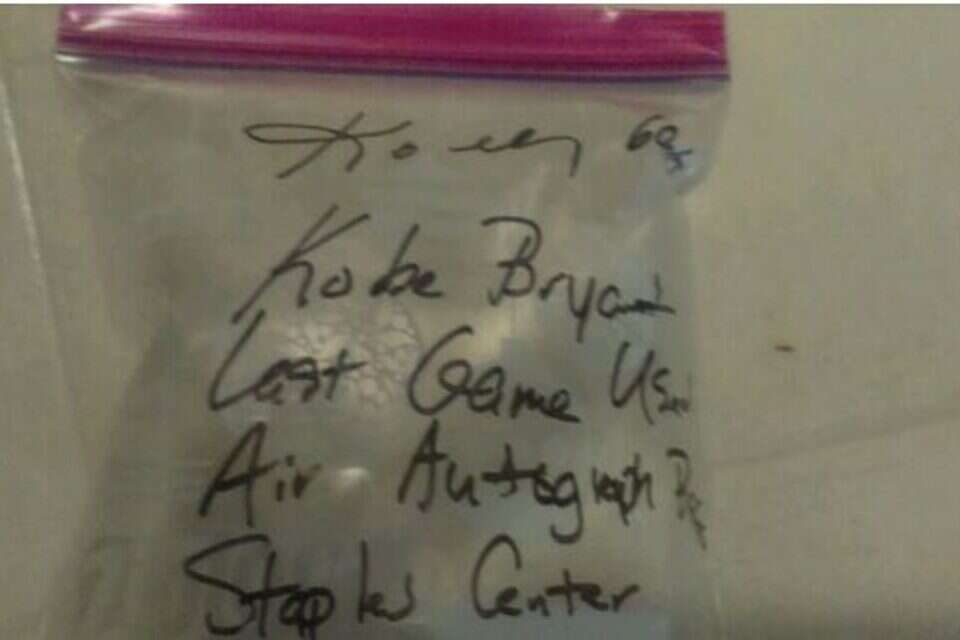 Kobe Bryant
Last Game Used
Air Autograph
Staples Center